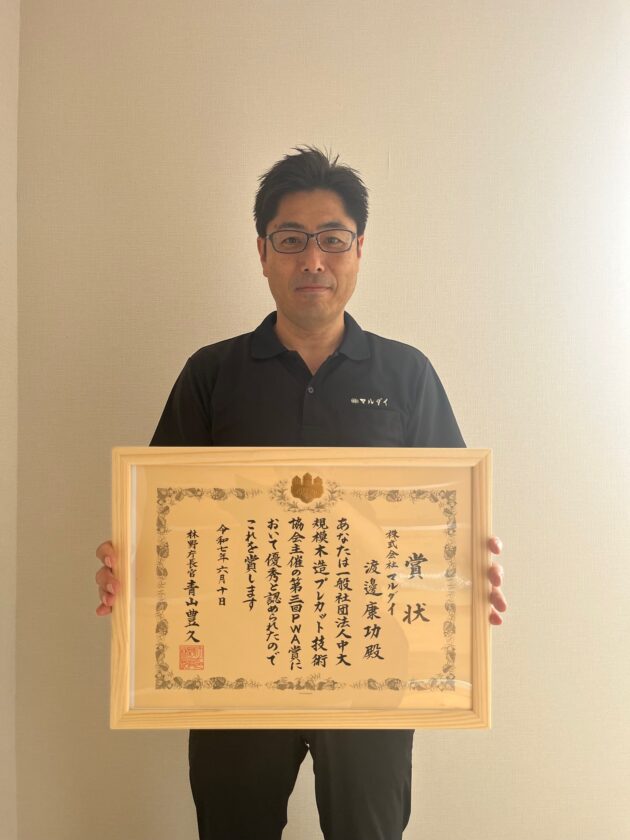 ㈱マルダイ
賞状
株式会社マルダイ
渡邊康功殿
あなたは一般社団法人中大
規模木造プレカット技術
協会主催の第三回PWA賞に
おいて優秀と認められたので
これを賞します
令和七年六月十日
林野庁長官 青山豊久